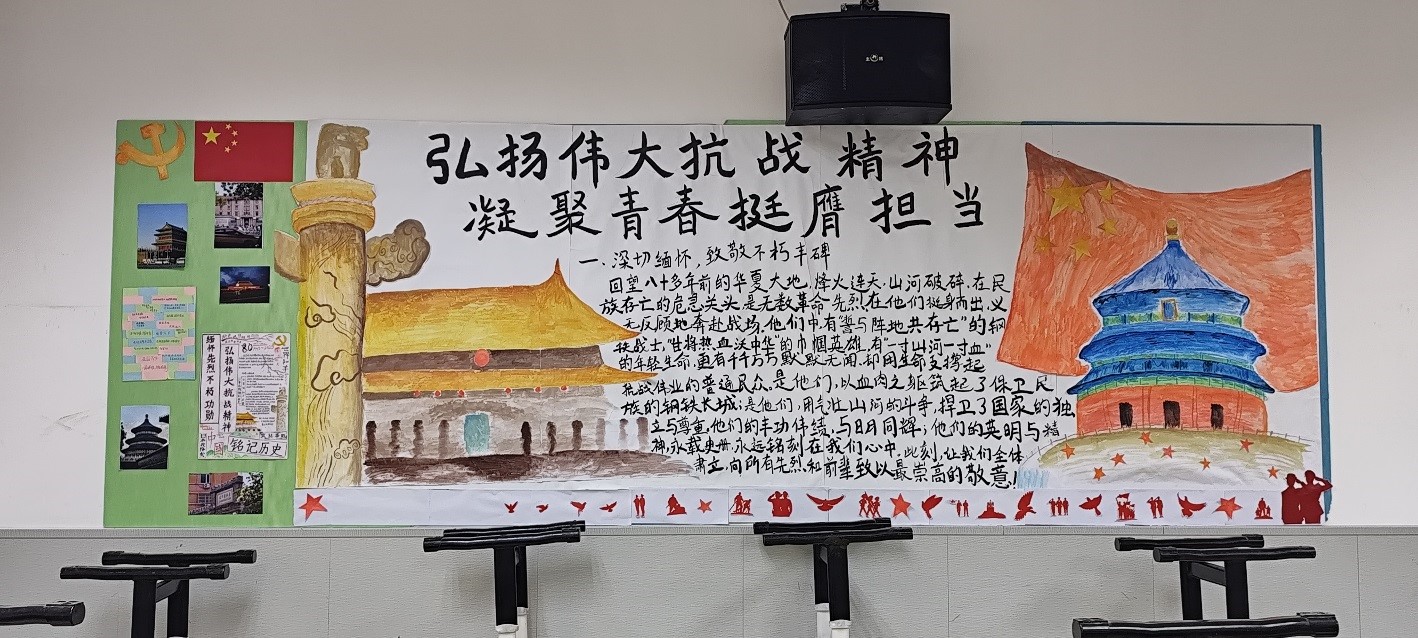 弘扬伟大抗战精神
凝聚青春挺膺担当
一、深切缅怀，致敬不朽丰碑
回望八十多年前的华夏大地，烽火连天，山河破碎，在民
族存亡的危急关头，是无数革命先烈在他们挺身而出，义
无反顾地奔赴战场，他们中，有"誓与阵地共存亡"的钢
铁战士，"甘将热血沃中华"的巾帼英雄，有"一寸山河一寸血"
的年轻生命，更有千千万万默默无闻，却用生命支撑起
抗战伟业的普通民众。是他们，以血肉之躯筑起了保卫民
族的钢铁长城；是他们，用气壮山河的斗争，捍卫了国家的独
立与尊重，他们的丰功伟绩，与日月同辉；他们的英明与精
神，永载史册，永远铭刻在我们心中。此刻，让我们全体
肃立，向所有先烈和前辈致以最崇高的敬意！
缅怀先烈不朽功勋
弘扬伟大抗战精神
80
中国
铭记历史